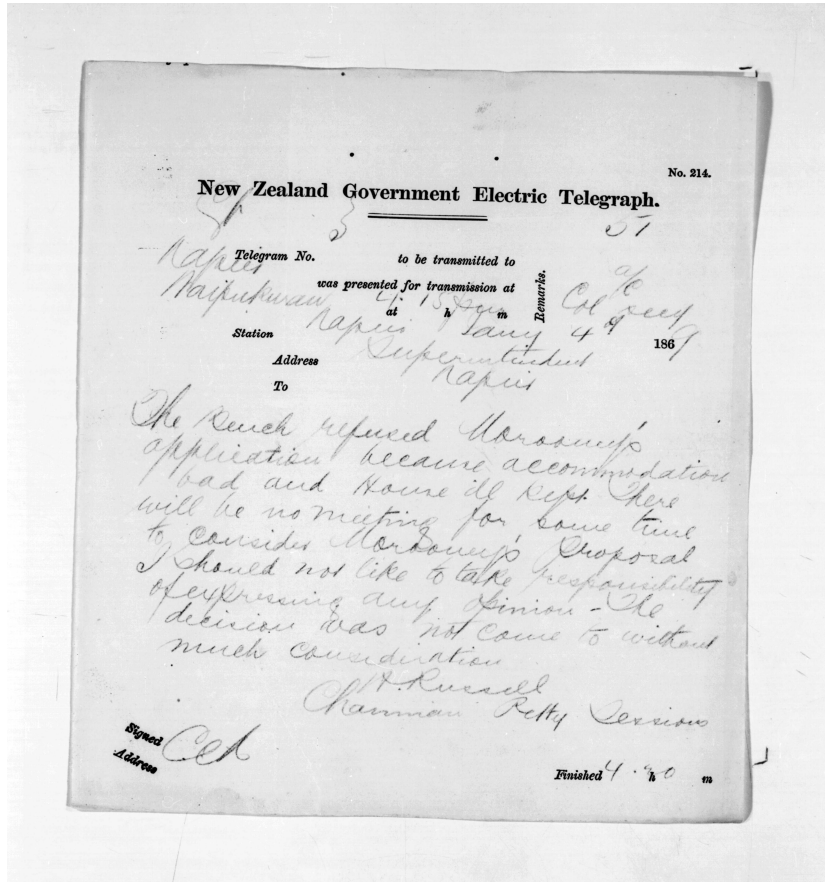 No. 214.
New Zealand Government Electric Telegraph.
3 51
Napier
Telegram No. to be transmitted to
was presented for transmission at
Waipukurau 4. 15 pm Col Secy
a/c
at h m Remarks.
Station Napier Jany 4 1869
Address Superintendent
To Napier
The Bench refused
application because accommodation
bad and House ill kept. There
will be no meeting for some time
to consider Proposal
I should not like to take responsibility
of expressing any opinion - The
decision was not come to without
much consideration
H. Russell
Chairman Petty Sessions
Signed
Address
Finished 4.20 h m